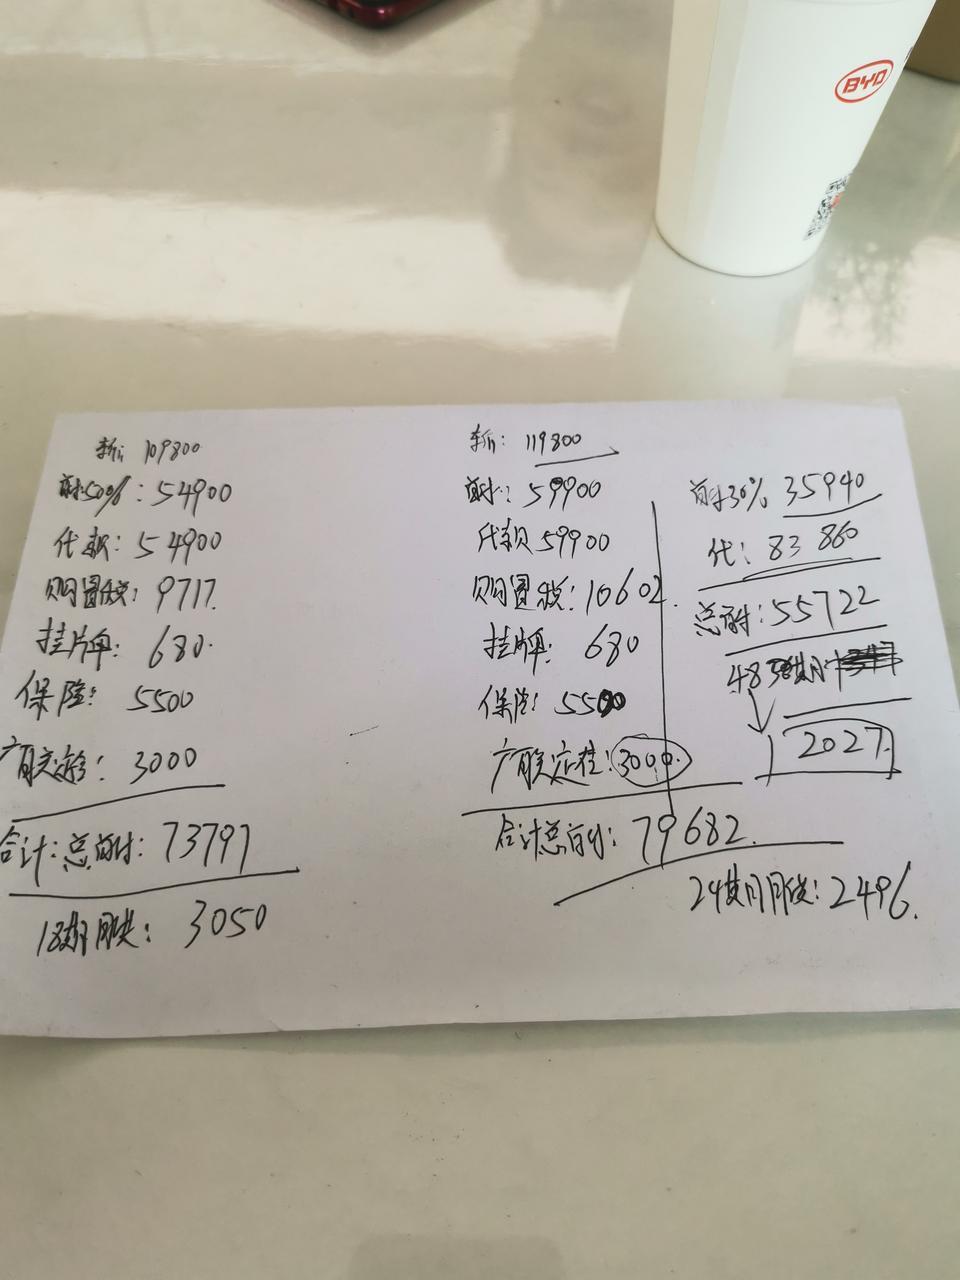 BYD
车价: 109800
首付50%: 54900
代款: 54900
购置税: 9717.
挂牌: 680.
保险: 5500
3000
合计: 总首付: 73797
18期月供: 3050
车价: 119800
首付: 59900
代款 59900
购置税: 10602.
挂牌: 680
保险: 5500
3000.
合计总首付: 79682.
首付30% 35940
代: 83860
总首付: 55722
48 期
2027.
24期月供: 2496.